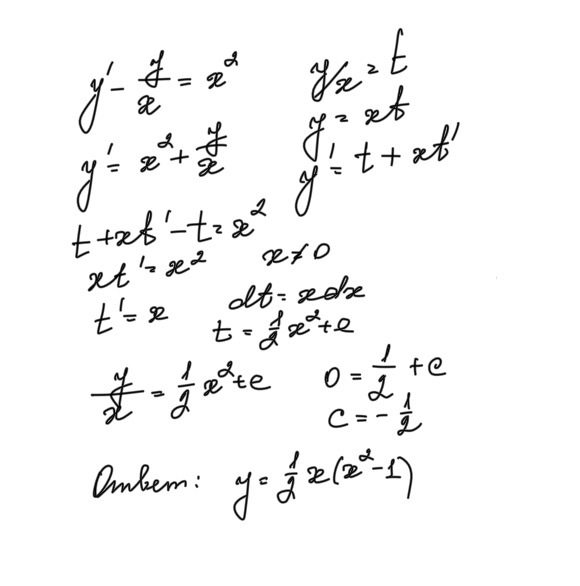 y' - y/x = x²
y/x = t
y = xt
y' = x² + y/x
y' = t + xt'
t + xt' - t = x²
xt' = x²
x ≠ 0
t' = x
dt = xdx
t = 1/2 x² + c
y/x = 1/2 x² + c
0 = 1/2 + c
c = - 1/2
Ответ: y = 1/2 x(x² - 1)